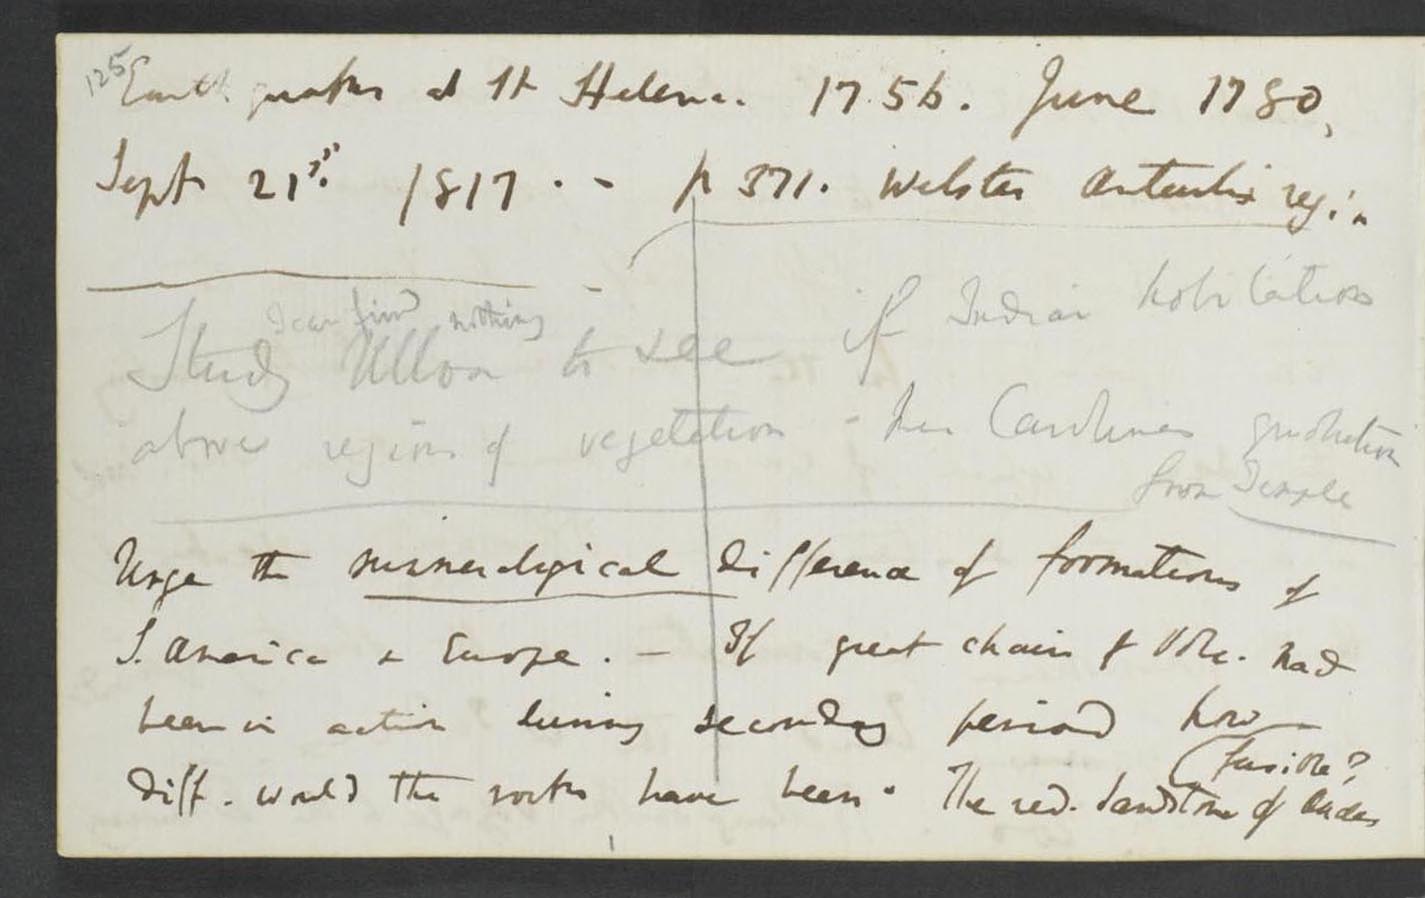 125
Earth quakes at St Helena. 1756. June 1780,
Sept 21st. 1817. - p 371. Webster Antarctic regi:n
I can find nothing
Study Ulloa to see if Indian habitations
above regions of vegetation -
quotation
from Temple
Urge the mineralogical difference of formations of
S. America & Europe. - If great chain of Vol. had
been in action during secondary period how
diff. would the rocks have been. The red. Sandstone of Andes
(fusible?